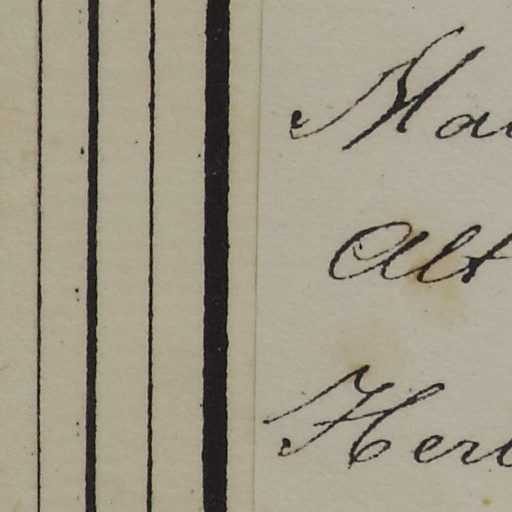 Ma
Alt
Her